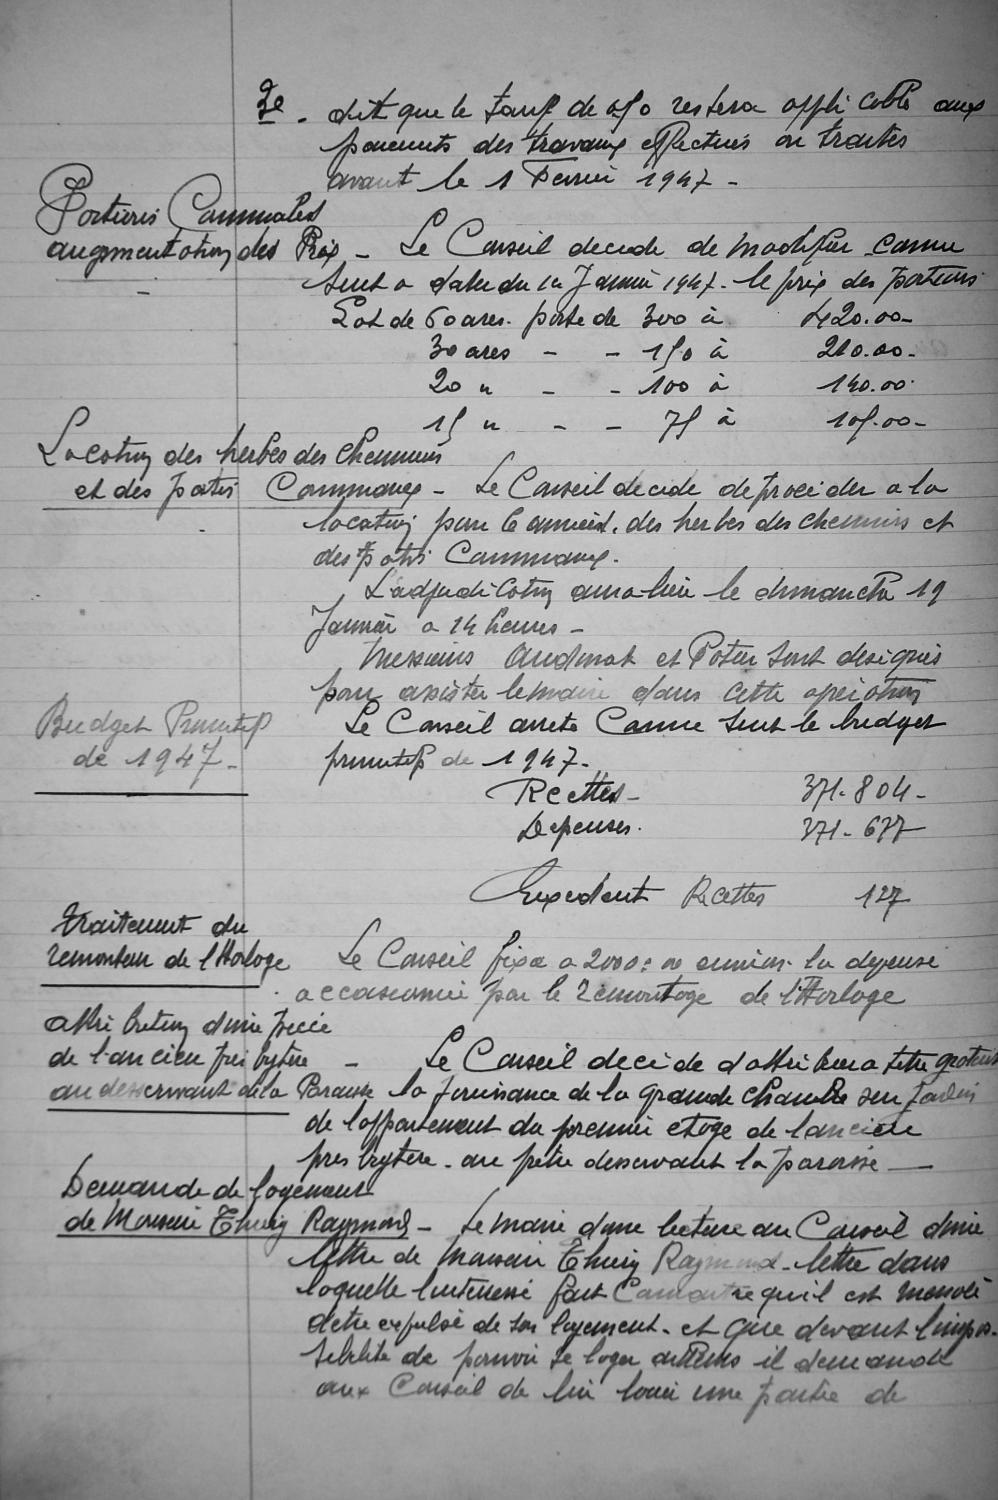 2e - dit que le tarif de 0/0 restera applicable aux
paiements des travaux effectués ou traités
avant le 1 Février 1947 -
Portions Communales
augmentation des Prix - Le Conseil décide de modifier comme
suit à dater du 1er Janvier 1947 - le prix des portions
Lot de 60 ares. porté de 300 à 420.00 -
30 ares - - 150 à 210.00 -
20 " - - 100 à 140.00
15 " - - 75 à 105.00 -
Location des herbes des chemins
et des patis Communaux - Le Conseil décide de procéder à la
location pour 6 années, des herbes des chemins et
des patis Communaux.
L'adjudication aura lieu le dimanche 19
Janvier à 14 heures -
Messieurs Audinot et Potier sont désignés
pour assister le maire dans cette opération
Budget Primitif Le Conseil arrête comme suit le budget
de 1947 - primitif de 1947 -
Recettes - 371.804 -
Dépenses. 371.677
Excédent Recettes 127
Traitement du
remonteur de l'Horloge Le Conseil fixe à 2000=00 la dépense
occasionnée par le remontage de l'Horloge
attribution d'une pièce
de l'ancien presbytère - Le Conseil décide d'attribuer à titre gratuit
au desservant de la Paroisse la jouissance de la grande chambre
de l'appartement du premier étage de l'ancien
presbytère - au prêtre desservant la paroisse -
Demande de logement
de Monsieur Thiery Raymond - Le maire donne lecture au Conseil d'une
lettre de Monsieur Thiery Raymond - lettre dans
laquelle l'intéressé fait Connaitre qu'il est menacé
d'être expulsé de son logement - et que devant l'impos-
sibilité de pouvoir se loger ailleurs il demande
aux Conseil de lui louer une partie de